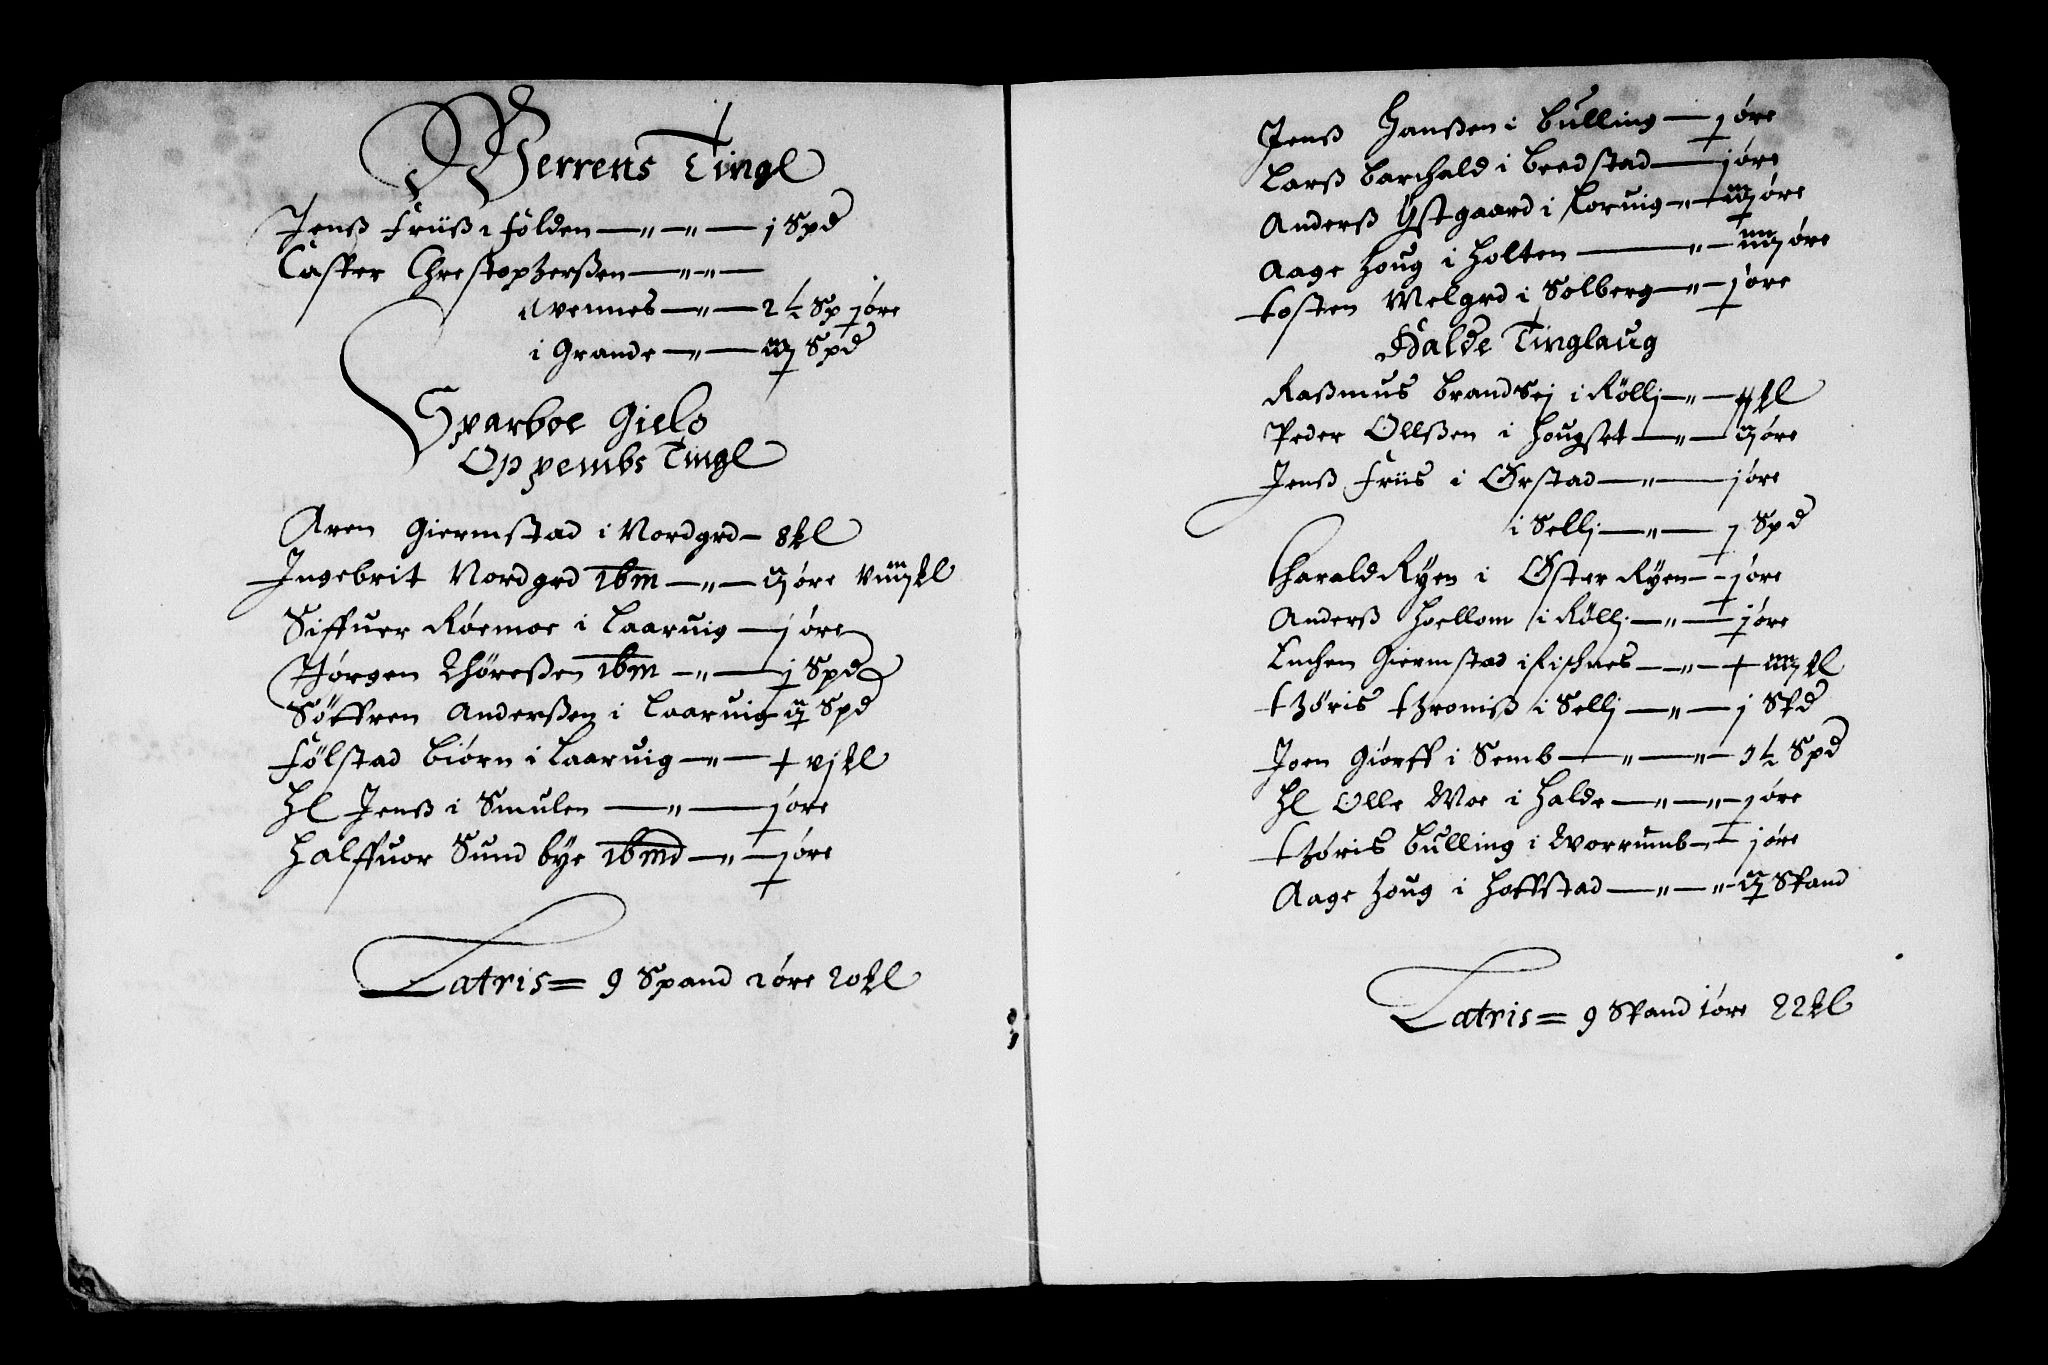 Werrens Tingl
Jenß Friiß i Folden — " — " — j Spd
Casper Chrestopherßen — " — " —
Avennes — " — 2 ½ Sp jøre
i Grande — " — iij Spd
Sparboe Gield
Oppembs Tingl
Aren Giermstad i Nordgrd — 8 kl
Ingebrit Nordgrd ibm — " — ijøre viiij kl
Siffuer Røemoe i Laaruig — jøre
Jørgen Thøreßen ibm — " — j Spd
Søffren Anderßen i Laaruig ij Spd
Følstad Biørn i Laaruig — " — vj kl
Hl Jenß i Smulen — " — jøre
Halffuor Sund bye ibmd — " — jøre
Latris = 9 Spand 1øre 20 kl
Jenß Hanßen i Bulling — jøre
Larß Barchald i Beedstad — jøre
Anderß Østgaard i Koruig — " — iijøre
Aage Houg i Holten — " — iiijøre
tosten Welgrd i Solberg — " — jøre
Halde Tinglaug
Raßmus Brandsej i Rølli — " — kl
Peder Ollßen i Hougset — " — ijøre
Jenß Friis i Ørstad — " — jøre
i Selli — " — j Spd
Harald Ryen i Øster Ryen — jøre
Anderß Hoellom i Rølli — " — jøre
Luchen Giermstad i Fischnes — " — iiij kl
thøris throniß i Selli — " — j Spd
Joen Giørff i Semb — " — " — 1 ½ Spd
Hl Olle Moe i Halde — " — " — jøre
thøris Bulling i Worrumb — jøre
Aage Houg i Hoffstad — " — " ij Spand
Latris = 9 Spand 1øre 22 kl